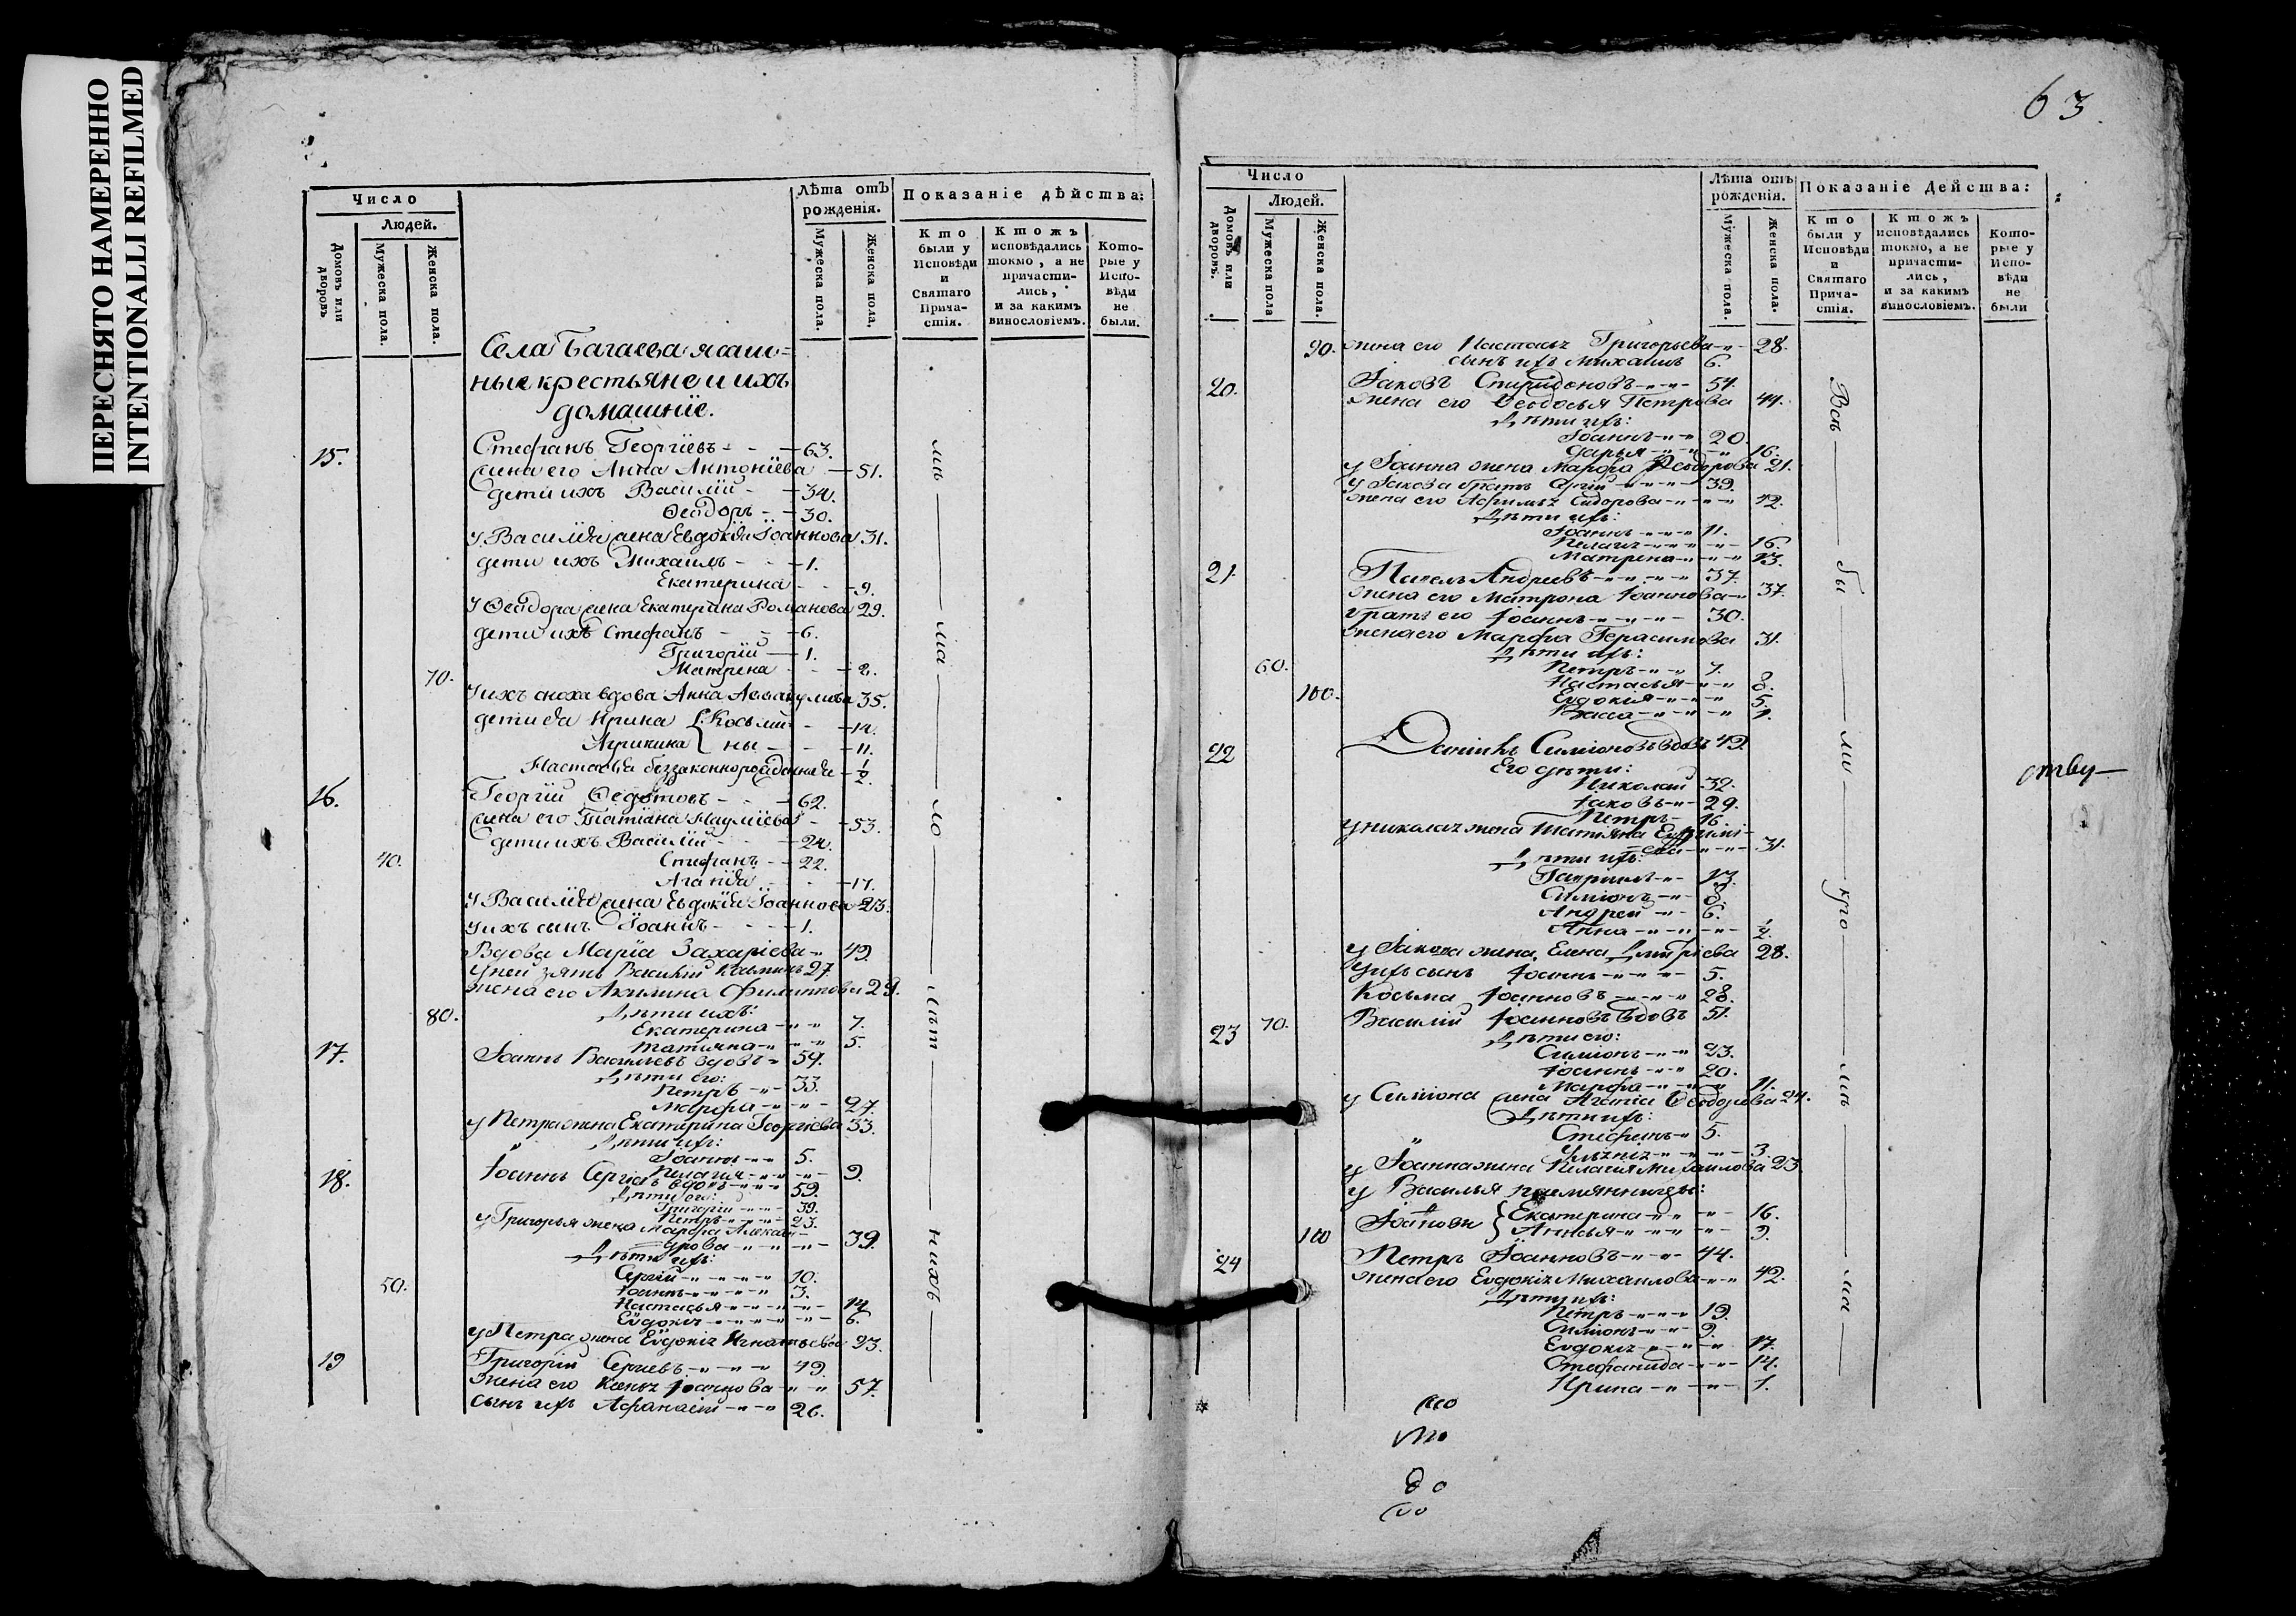 ПЕРЕСНЯТО НАМЕРЕННО
INTENTIONALLI REFILMED
Число
Людей.
Домовъ или дворовъ
Мужеска пола.
Женска пола.
Лѣта отъ рожденія.
Мужеска пола.
Женска пола.
Показаніе дѣйства:
Кто были у Исповѣди и Святаго Причастія.
Ктожъ исповѣдались токмо, а не причастились, и за какимъ винословіемъ.
Которые у Исповѣди не были.
Села Багаева ясаш=
ные крестьяне и ихъ
домашнїе.
15. Стефанъ Георгїевъ - - 63.
жена его Анна Антонїева 51.
дети ихъ Василїй - 34.
Ѳеодоръ - 30.
у Василїя жена Евдокїя Їоаннова 31.
дети ихъ Михаилъ - - 1.
Екатерина - - 9.
у Ѳеодора жена Екатерина Романова 29.
дети ихъ Стефанъ - - 6.
Григорїй 1.
70. Матрена - - 2.
у ихъ сноха вдова Анна 35.
дети ея Ирина { Козьми- - 14.
Агрипина { ны - - 11.
Настасья беззаконнорожденная 1/2.
16. Георгїй Ѳедотовъ - - 62.
жена его Татїана Наумїева - 53.
дети ихъ Василїй - - 24.
40. Стефанъ - 22.
Агафїя - - 17.
у Василїя жена Евдокїя Їоаннова 23.
у ихъ сынъ Їоаннъ - - - 1.
Вдова Марїя Захарїева 49.
у ней зять Василїй Козминъ 27.
жена его Акилина Филиппова 29.
80. Дѣти ихъ:
Екатерина 7.
Татїяна 5.
17. Іоаннъ Васильевъ вдовъ 59.
Дѣти его:
Петръ 33.
Марфа 27.
у Петра жена Екатерина Георгіева 33.
Дѣти ихъ:
Іоаннъ 5.
Пелагія 9.
18. Іоаннъ Сергіевъ вдовъ 59.
Дѣти его:
Григорій 39.
Петръ 23.
у Григорья жена Марфа Алексан-
дрова 39.
Дѣти ихъ:
Сергій 10.
50. Іоаннъ 3.
Настасья 14.
Евдокія 6.
у Петра жена Евдокія Игнатьева 23.
19 Григорій Сергіевъ 49.
жена его Ксенія Іоаннова 57.
сынъ ихъ Афанасій 26.
мъ — ма — ло — лѣт — нихъ
63.
Число
Людей.
Домовъ или дворовъ.
Мужеска пола
Женска пола.
Лѣта отъ рожденія.
Мужеска пола.
Женска пола.
Показаніе Действа:
Кто были у Исповѣди и Святаго Причастія.
Ктожъ исповѣдались токмо, а не причастились, и за какимъ винословіемъ.
Которые у Исповѣди не были
90. жена его Настасья Григорьева 28.
сынъ ихъ Михаилъ 6.
20. Іаковъ Спиридоновъ 54.
жена его Ѳеодосья Петрова 44.
Дѣти ихъ:
Іоаннъ 20.
Дарья 16.
у Іоанна жена Марфа Ѳеодорова 21.
у Іакова братъ Сергій 39.
жена его Сидорова 42.
Дѣти ихъ:
Іоаннъ 11.
Пелагія 16.
Матрена 13.
21. Павелъ Андреевъ 37.
жена его Матрона Іоаннова 37.
братъ его Іоаннъ 30.
жена его Марфа Герасимова 31.
Дѣти ихъ:
60. Петръ 7.
Настасья 8.
100. Евдокія 5.
Васса 1.
22 Даніилъ Симіоновъ вдовъ 49.
Его дѣти:
Николай 32.
Іаковъ 29.
Петръ 16
у Николая жена Татіяна Ефимі-
ева 31.
Дѣти ихъ:
Гавріилъ 13.
Симіонъ 8.
Андрей 6.
Анна 1/2.
у Іакова жена Елена Дмитріева 28.
у ихъ сынъ Іоаннъ 5.
Косьма Іоанновъ 28.
23 70. Василій Іоанновъ вдовъ 51.
Дѣти его:
Симіонъ 23.
Іоаннъ 20.
Марфа 11.
у Симіона жена Агафія Ѳеодорова 24.
Дѣти ихъ:
Стефанъ 5.
3.
у Іоанна жена Пелагія Михаилова 23
у Василья племянницы:
Іоанновы } Екатерина 16.
100 Анисья 9.
24 Петръ Їоанновъ 44.
жена его Евдокія Михаилова 42.
Дѣти ихъ:
Петръ 19.
Симіонъ 9.
Евдокія 17.
Стефанида 14.
Ирина 1.
Всѣ — бы — ли — кро — мѣ — ма